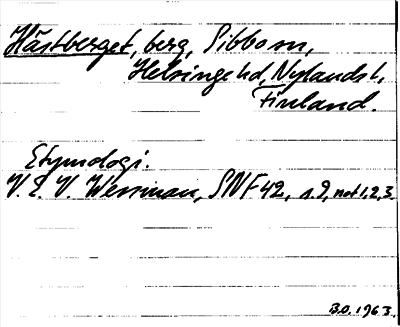 Hästberget, berg, Sibbo sn,
Helsinge hd, Nylands l.,
Finland.
Etymologi.
V. E. V. Wessman, SNF 42, s. 9, not 1, 2, 3.
B.O. 1963.